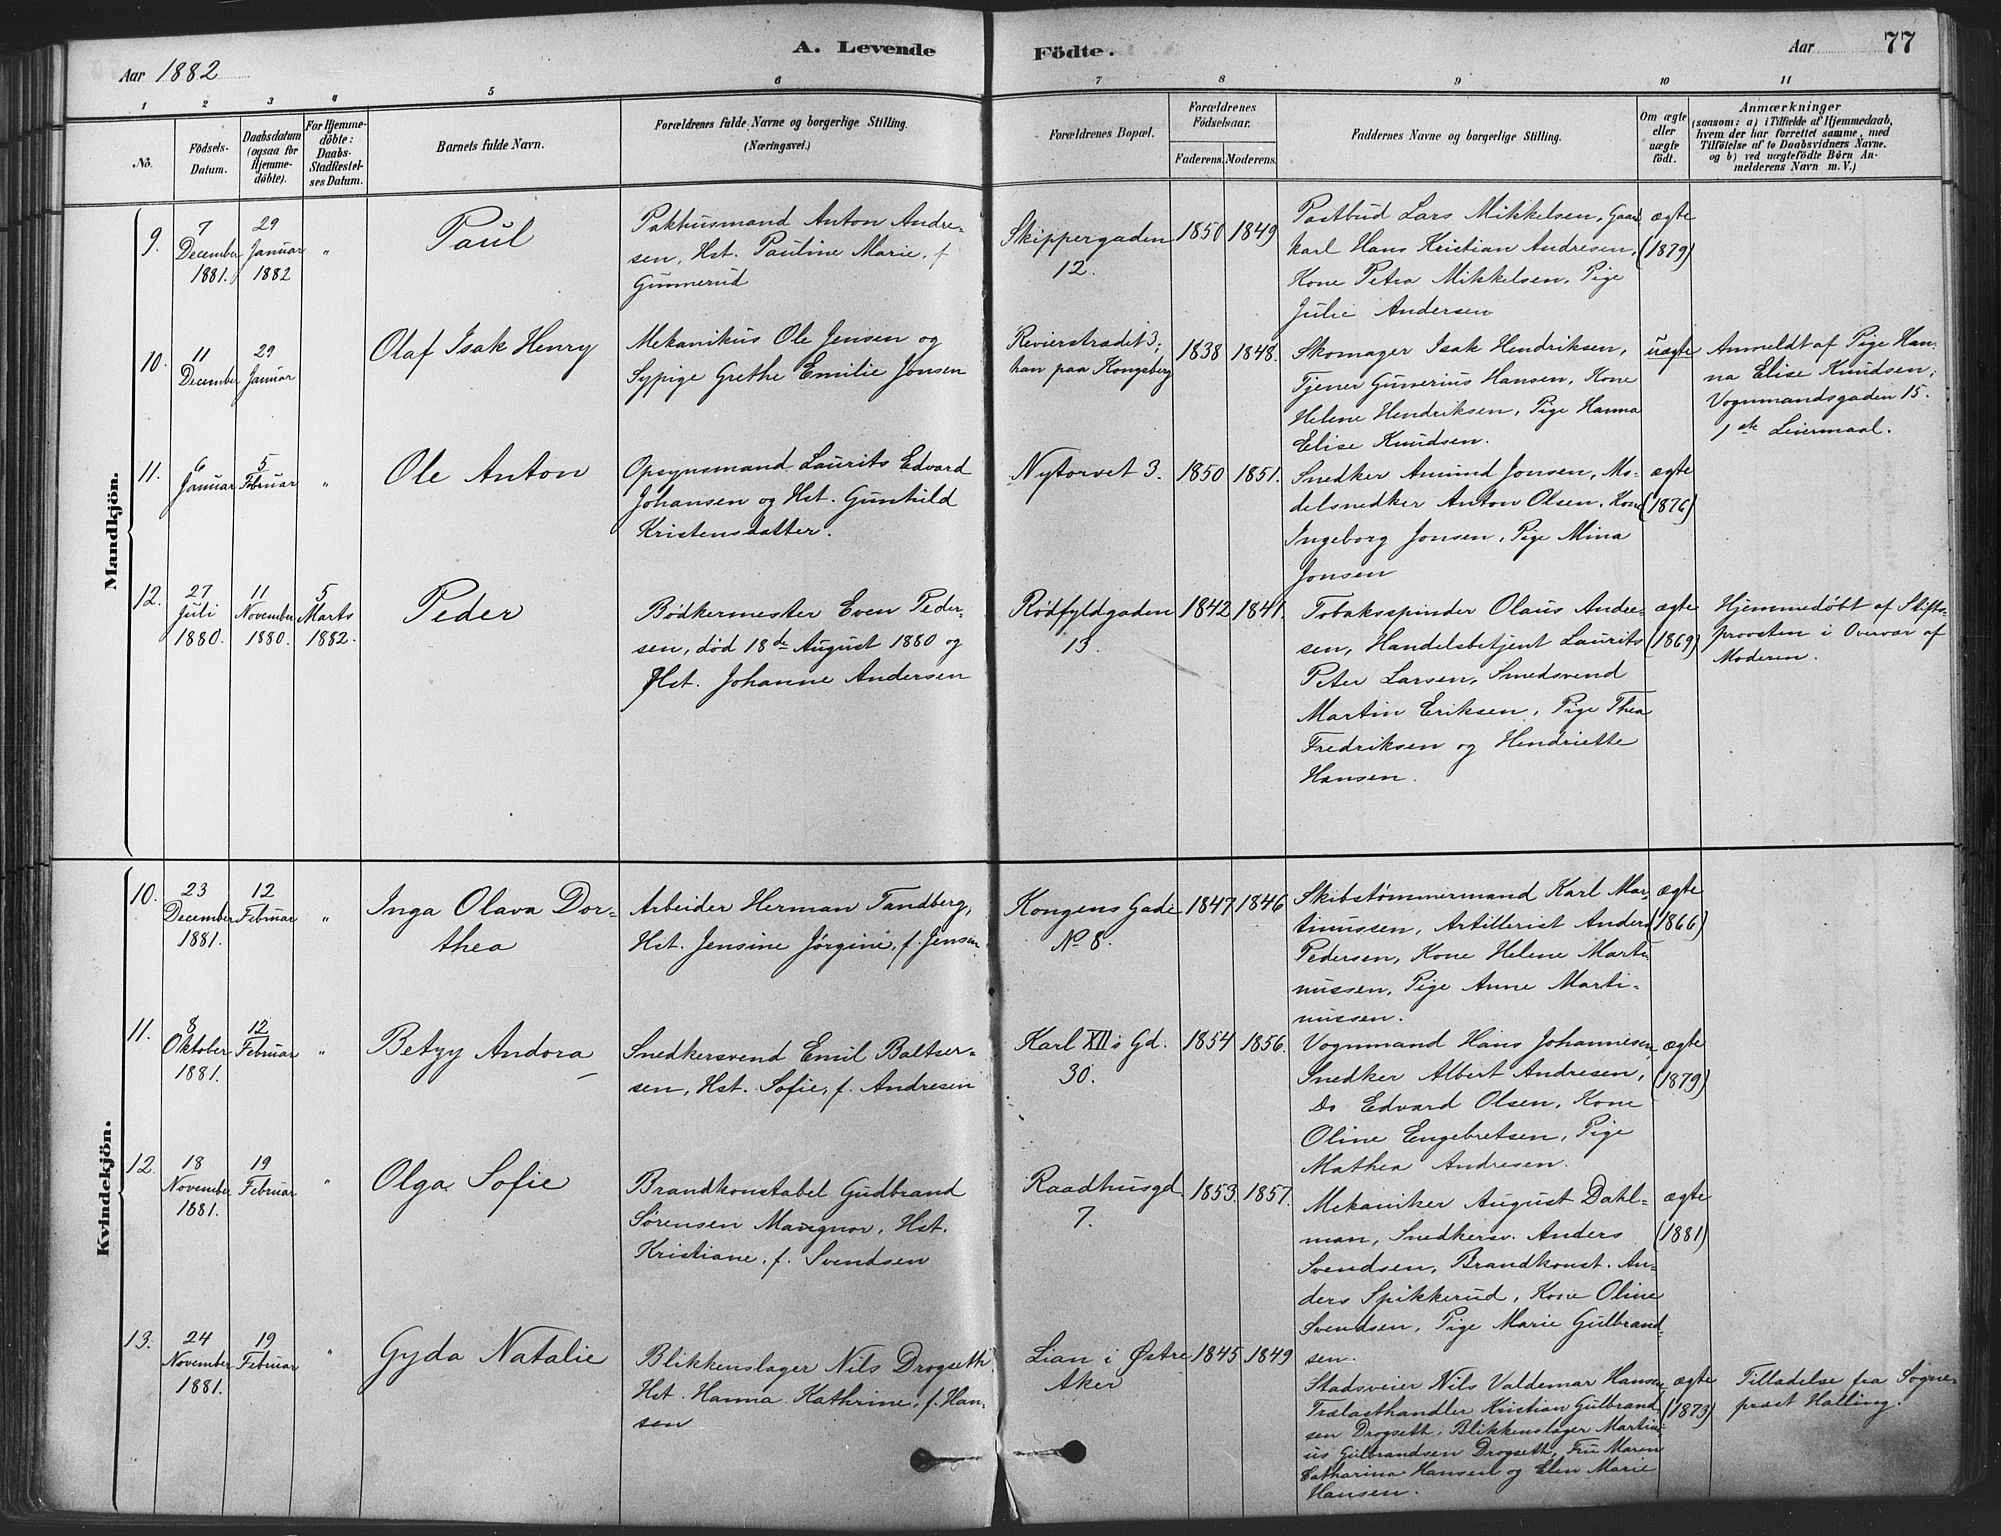 Aar 1882
A. Levende
Födte.
Aar
77
1 2 3 4 5 6 7 8 9 10 11
No.
Födsels-
Datum.
Daabsdatum
(ogsaa for
Hjemme-
döbte).
For Hjemme-
döbte:
Daabs-
Stadfæstel-
ses Datum.
Barnets fulde Navn.
Forældrenes fulde Navne og borgerlige Stilling.
(Næringsvei.)
Forældrenes Bopæl.
Forældrenes
Födselsaar.
Faderens. Moderens.
Faddernes Navne og borgerlige Stilling.
Om ægte
eller
uægte
födt.
Anmærkninger
(saasom: a) i Tilfælde af Hjemmedaab,
hvem der har forrettet samme, med
Tilföielse af to Daabsvidners Navne.
og b) ved uægtefödte Börn An-
melderens Navn m. V.)
Mandkjön.
9.
7
December
1881.
29
Januar
1882
"
Paul
Pakhusmand Anton Andre-
sen, Hst. Pauline Marie, f
Gunnerud
Skippergaden
12.
1850 1849
Postbud Lars Mikkelsen, Gaards
karl Hans Kristian Andresen,
Kone Petra Mikkelsen, Pige
Julie Andersen
ægte
(1879)
10.
11
December
29
Januar
Olaf Isak Henry
Mekanikus Ole Jensen og
Sypige Grethe Emilie Jonsen
Revierstrædet 3;
han paa Kongsberg
1838 1848.
Skomager Isak Hendriksen,
Tjener Gunerius Hansen, Kone
Helene Hendriksen, Pige Hanna
Elise Knudsen.
uægte
Anmeldt af Pige Han-
na Elise Knudsen,
Vognmandsgaden 15.
1ste Leiermaal.
11.
6
Januar
5
Februar
"
Ole Anton
Opsynsmand Laurits Edvard
Johansen og Hst. Gunhild
Kristensdatter.
Nytorvet 3.
1850 1851.
Snedker Amund Jonsen, Mo-
delsnedker Anton Olsen, Kone
Ingeborg Jonsen, Pige Mina
Jonsen
ægte
(1876)
12.
27
Juli
1880.
11
November
1880.
5
Marts
1882.
Peder
Bødkermester Even Peder-
sen, død 18de August 1880 og
Hst. Johanne Andersen
Rødfyldgaden
13.
1842 1841.
Tobaksspinder Olaus Andre-
sen, Handelsbetjent Laurits
Peter Larsen, Smedsvend
Martin Eriksen, Pige Thea
Fredriksen og Hendriette
Hansen.
ægte
(1869)
Hjemmedøbt af Stifts-
provsten i Overvær af
Moderen.
Kvindekjön.
10.
23
December
1881.
12
Februar
"
Inga Olava Dor-
thea
Arbeider Herman Tandberg,
Hst. Jensine Jørgine, f. Jensen
Kongens Gade
No 8.
1847 1846
Skibstømmermand Karl Mar-
tinussen, Artillerist Anders
Pedersen, Kone Helene Marti-
nussen, Pige Anne Marti-
nussen.
ægte
(1866)
11.
8
Oktober
1881.
12
Februar
"
Betzy Andora
Snedkersvend Emil Baltser-
sen, Hst. Sofie, f. Andresen
Karl XII's Gd.
30.
1854 1856.
Vognmand Hans Johannesen,
Snedker Albert Andresen,
Do Edvard Olsen, Kone
Oline Engebretsen, Pige
Mathea Andresen.
ægte
(1879)
12.
18
November
1881.
19
Februar
"
Olga Sofie
Brandkonstabel Gudbrand
Sørensen Mangnor, Hst.
Kristiane, f. Svendsen
Raadhusgd.
7.
1853. 1857.
Mekaniker August Dahl-
man, Snedkersv. Anders
Svendsen, Brandkonst. An-
ders Spikkerud, Kone Oline
Svendsen, Pige Marie Gulbrand-
sen.
ægte
(1881)
13.
24
November
1881.
19
Februar
"
Gyda Natalie
Blikkenslager Nils Drogseth
Hst. Hanna Kathrine, f. Han-
sen
Lian i Østre
Aker
1845 1849
Stadsveier Nils Valdemar Hansen
Trælasthandler Kristian Gulbrand-
sen Drogseth, Blikkenslager Martini-
us Gulbrandsen Drogseth, Fru Maren
Catharina Hansen og Elen Marie
Hansen.
ægte
(1873)
Tilladelse fra Sogne-
præst Halling.